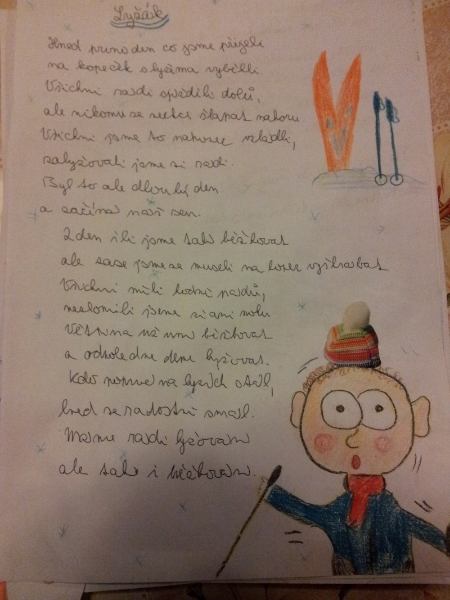 Lyžák
Hned první den co jsme přijeli
na kopeček s lyžema vyběhli
Všichni rádi sjížděli dolů,
ale nikomu se nechce šlapat nahoru
Všichni jsme to nakonec zvládli,
zalyžovali jsme si rádi.
Byl to ale dlouhý den
a začíná náš sen.
2 den šli jsme tak běžkovat
ale zase jsme se museli na kopec vyškrabat
Všichni měli hodně pádů,
nezlomili jsme si ani nohu
Většina už umí běžkovat
a odpoledne jdeme lyžovat.
Kdo poprvé na lyžích stál,
hned se radostí smál.
Máme rádi lyžování
ale tak i běžkování.